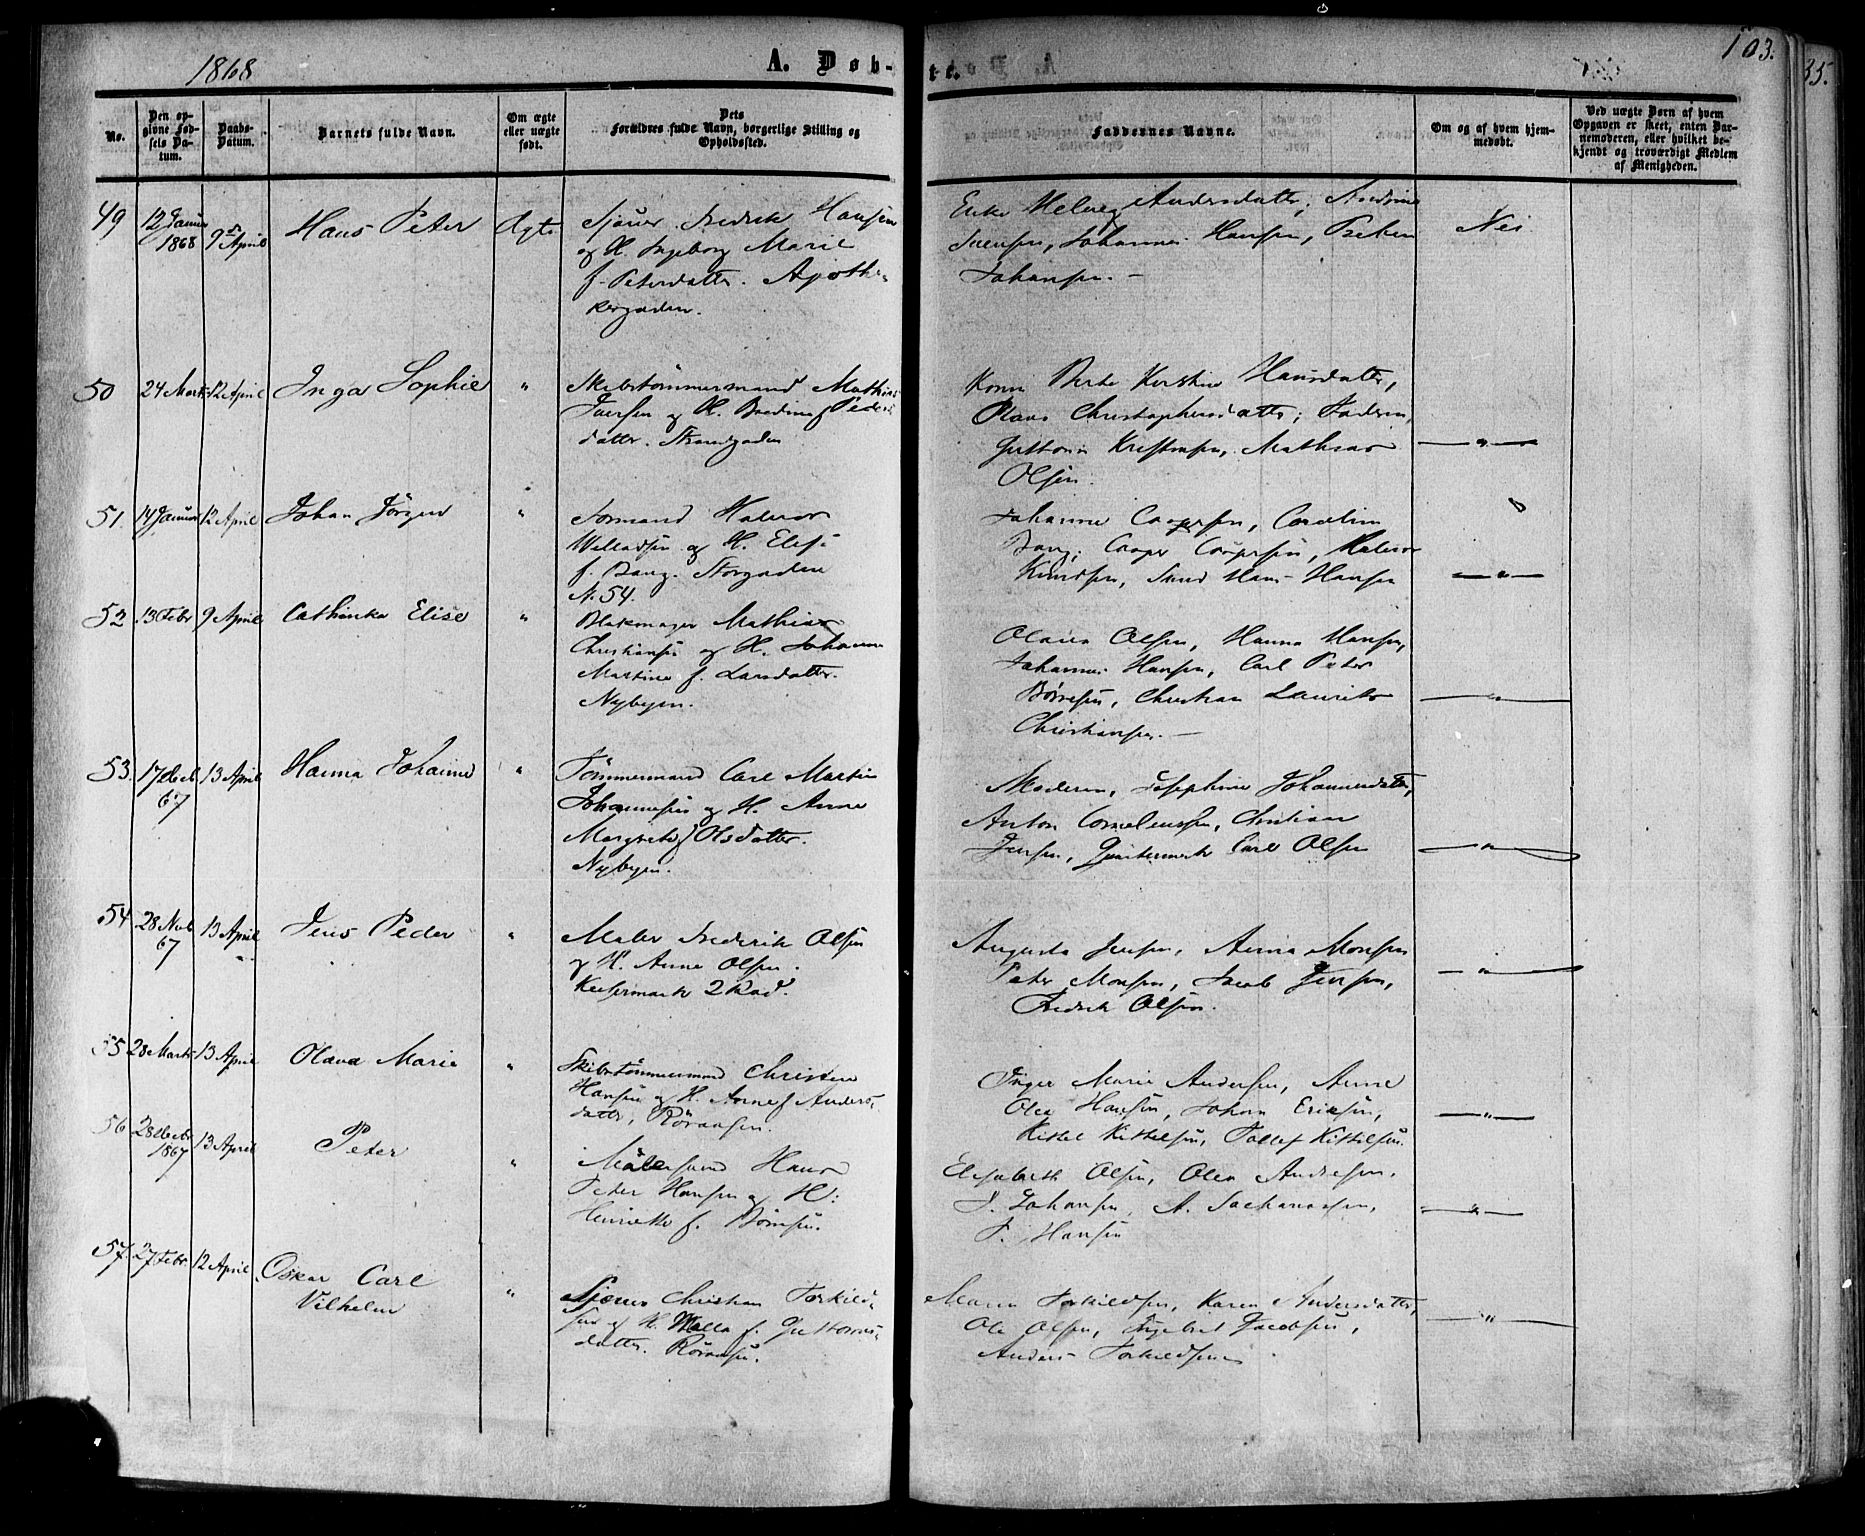 1868
A. Døb-
te.
103.
35.
No.
Den op-
givne Fød-
sels Da-
tum.
Daabs-
Datum.
Barnets fulde Navn.
Om ægte
eller uægte
født.
Dets
Forældres fulde Navn, borgerlige Stilling og
Opholdssted.
Faddernes Navne.
Om og af hvem hjem-
medøbt.
Ved uægte Børn af hvem
Opgaven er skeet, enten Bar-
nemoderen, eller hvilket be-
kjendt og troværdigt Medlem
af Menigheden.
49
12 Januar
1868
9 April
Hans Peter
Ægte
Fredrik Hansen
og H. Ingeborg Marie
f. Petersdatter. Apothe-
kergaden.
Enke Andersdatter,
Svensen, Johannes Hansen,
Johansen. —
Nei
50
24 Marts
12 April
Inga Sophie
"
Skibstømmermand Mathias
Iversen og H. f. Peders
datter. Strandgaden
Kone Berte Kirstine Hansdatter,
Christophersdatter; Faderen,
Mathias
Olsen.
— " —
51
14 Januar
12 April
Johan Jörgen
"
Formand Halvor
og H. Elise
f. Bang. Storgaden
N. 54.
Johanne Coopersen,
Bang; Cooper Coopersen, Halvor
Knudsen, Hans Hansen
— " —
52
13 Febr
9 April
Cathinka Elise
"
Blokmager Mathias
Christiansen og H. Johanne
Martine f. Larsdatter.
Nybyen.
Olava Olsen, Hanna Hansen,
Johannes Hansen, Carl Peter
Børresen, Christian Laurits
Christiansen. —
— " —
53.
17 Decb
67
13 April
Hanna Johanne
"
Tømmermand Carl Martin
Johannesen og H. Anne
Margrete f. Olsdatter.
Nybyen.
Moderen, Josephine Johannesdatter,
Anton Corneliussen, Christian
Jensen, Carl Olsen
— " —
54
28 Novb
67
13 April
Jens Peder
"
Maler Frederik Olsen
og H. Anne Olsen.
2 Rad.
Augusta Jensen, Anna Monsen
Peter Monsen, Jacob Jensen,
Fredrik Olsen.
— " —
55
28 Marts
13 April
Olava Marie
"
Skibstømmermand Christen
Hansen og H. Anne f. Anders-
datter, Röraasen.
Inger Marie Andersen, Anne
Olea Hansen, Johan Eriksen,
Kittel Kittelsen, Tollef Kittelsen.
— " —
56
28 Decbr
1867
13 April
Peter
"
Hans
Peter Hansen og H:
Henriette f.
Elisabeth Olsen, Olea Andresen.
J. Johansen, A. Sachariassen,
P. Hansen
— " —
57.
27 Febr.
12 April
Oskar Carl
Vilhelm
"
Christian Torkild-
sen og H. Malla f. Guttorms-
datter. Röraasen.
Maren Torkildsen, Karen Andersdatter,
Ole Olsen, Ingebret Jacobsen,
Anders Torkildsen
— " —